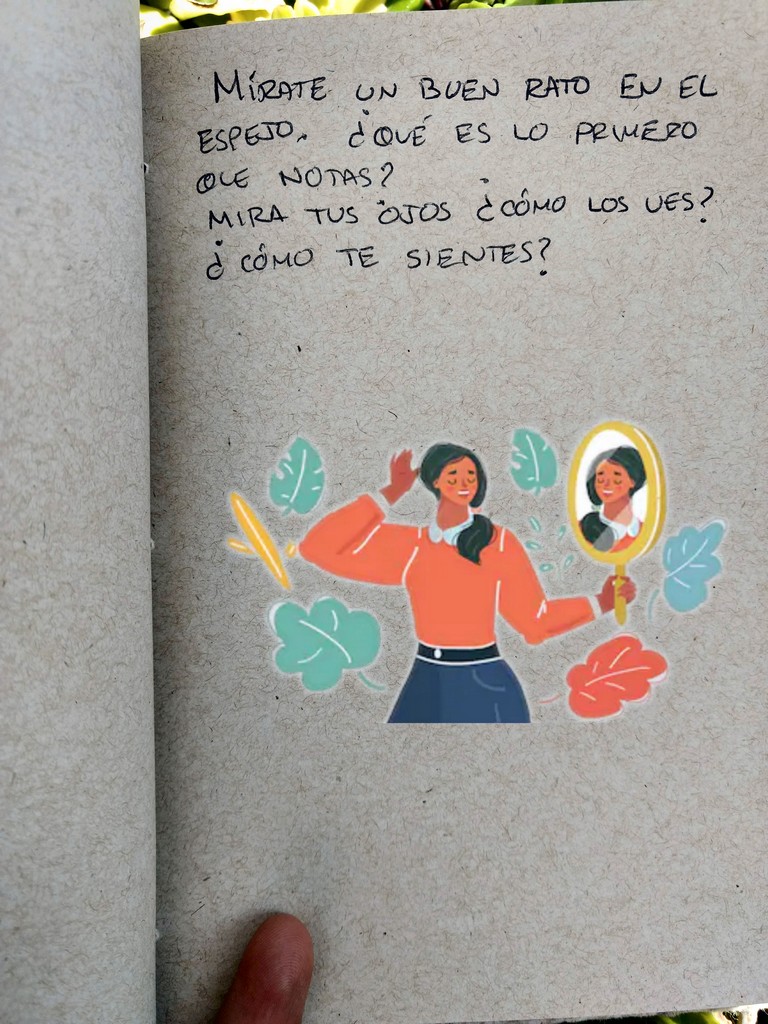 MÍRATE UN BUEN RATO EN EL
ESPEJO. ¿QUÉ ES LO PRIMERO
QUE NOTAS?
MIRA TUS OJOS ¿CÓMO LOS VES?
¿CÓMO TE SIENTES?